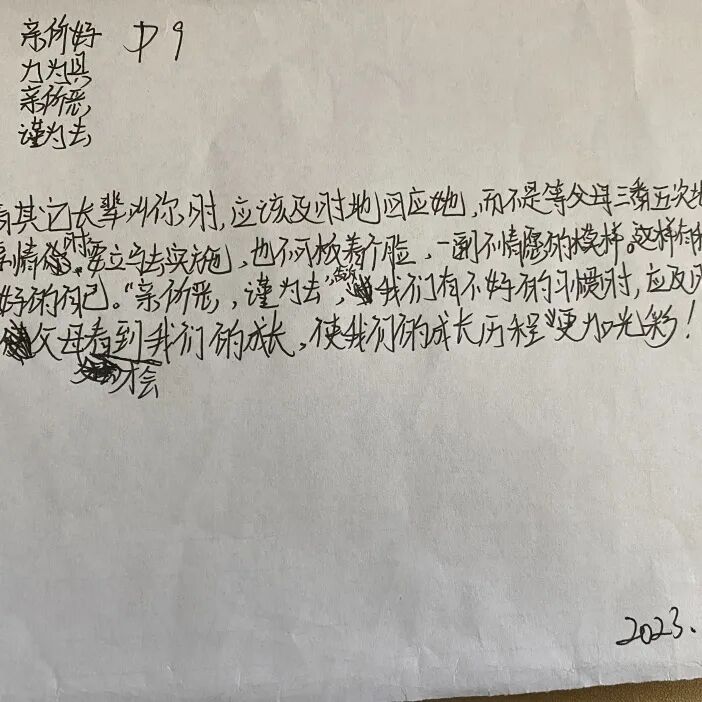 亲所好 P9
力为具
亲所恶,
谨为去
其它长辈叫你时,应该及时地回应她,而不是等父母三番五次地
事情你时要立马去实施,也不可板着个脸,一副不情愿的模样。这样
好的自己。"亲所恶,谨为去,"我们有不好的习惯时,应及时
父母看到我们的成长,使我们的成长历程更加光彩!
才会
2023.